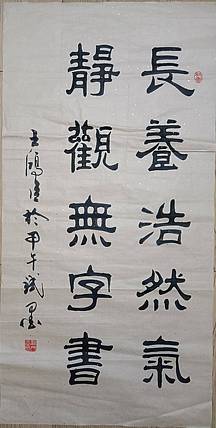 長養浩然氣
靜觀無字書
王鴻 於甲午試墨